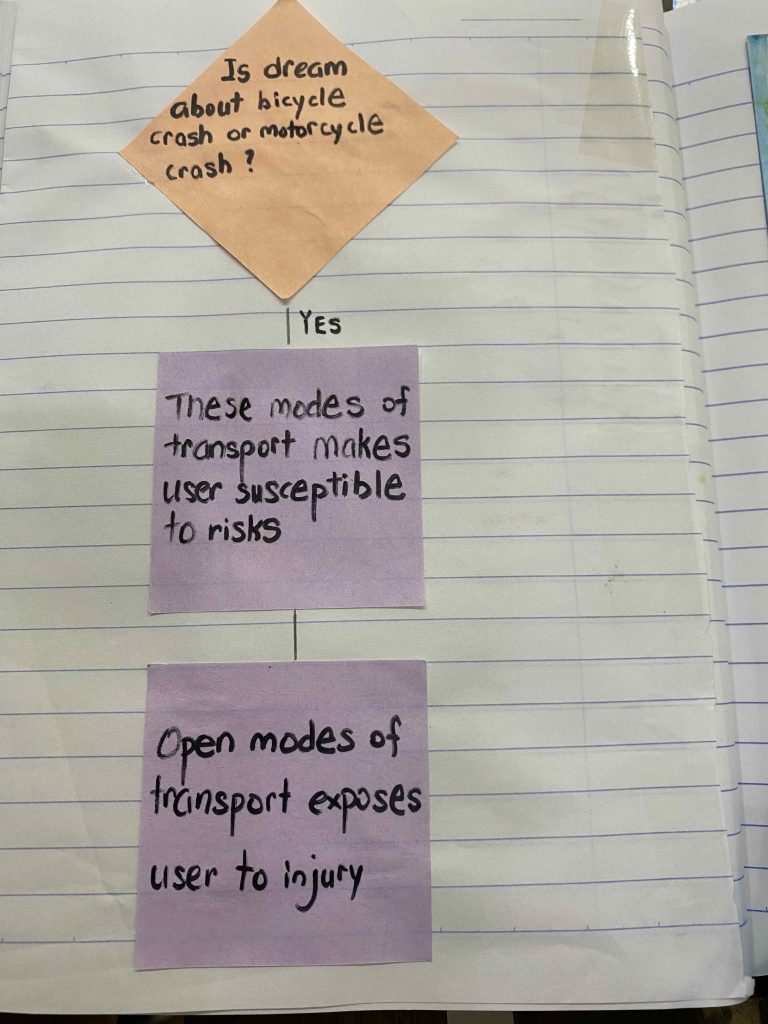 Is dream
about bicycle
crash or motorcycle
crash ?
YES
These modes of
transport makes
user susceptible
to risks
Open modes of
transport exposes
user to injury